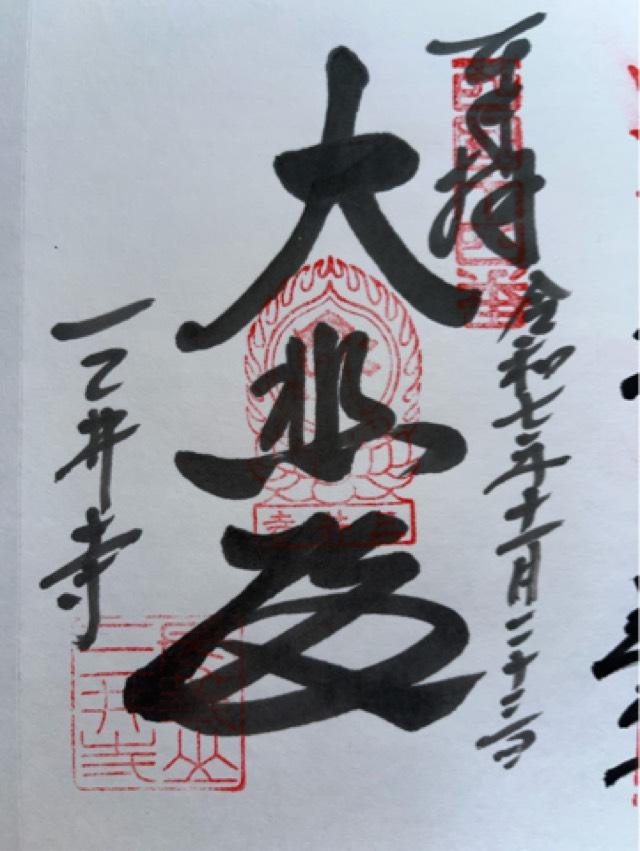 奉拝
令和七年十一月二十三日
大悲殿
三井寺
三井寺